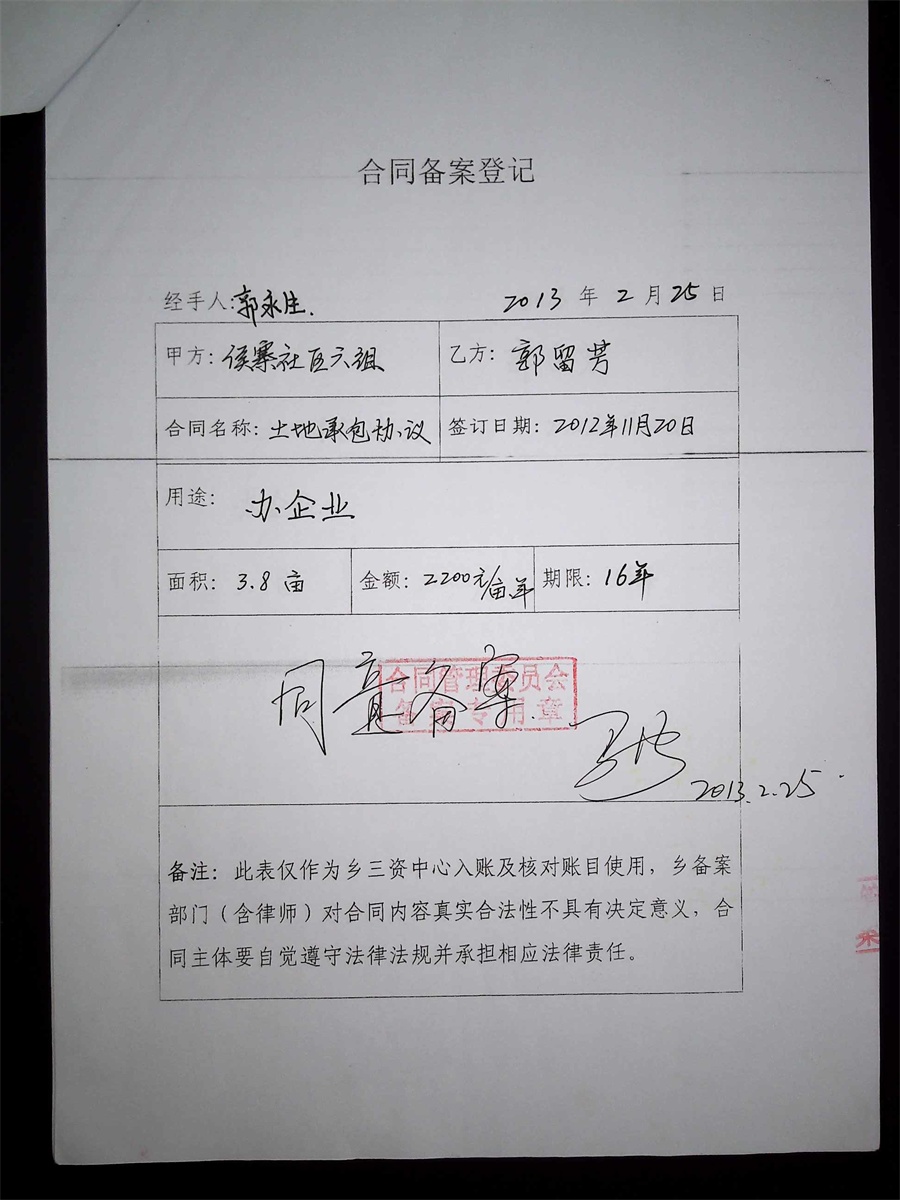 合同备案登记
经手人:郭永生. 2013 年 2 月 25 日
甲方: 侯寨社区六组 乙方: 郭留芳
合同名称: 土地承包协议 签订日期: 2012年11月20日
用途: 办企业
面积: 3.8 亩 金额: 2200元/亩年 期限: 16年
同意备案
合同管理委员会
备案专用章
2013.2.25
备注：此表仅作为乡三资中心入账及核对账目使用，乡备案
部门（含律师）对合同内容真实合法性不具有决定意义，合
同主体要自觉遵守法律法规并承担相应法律责任。